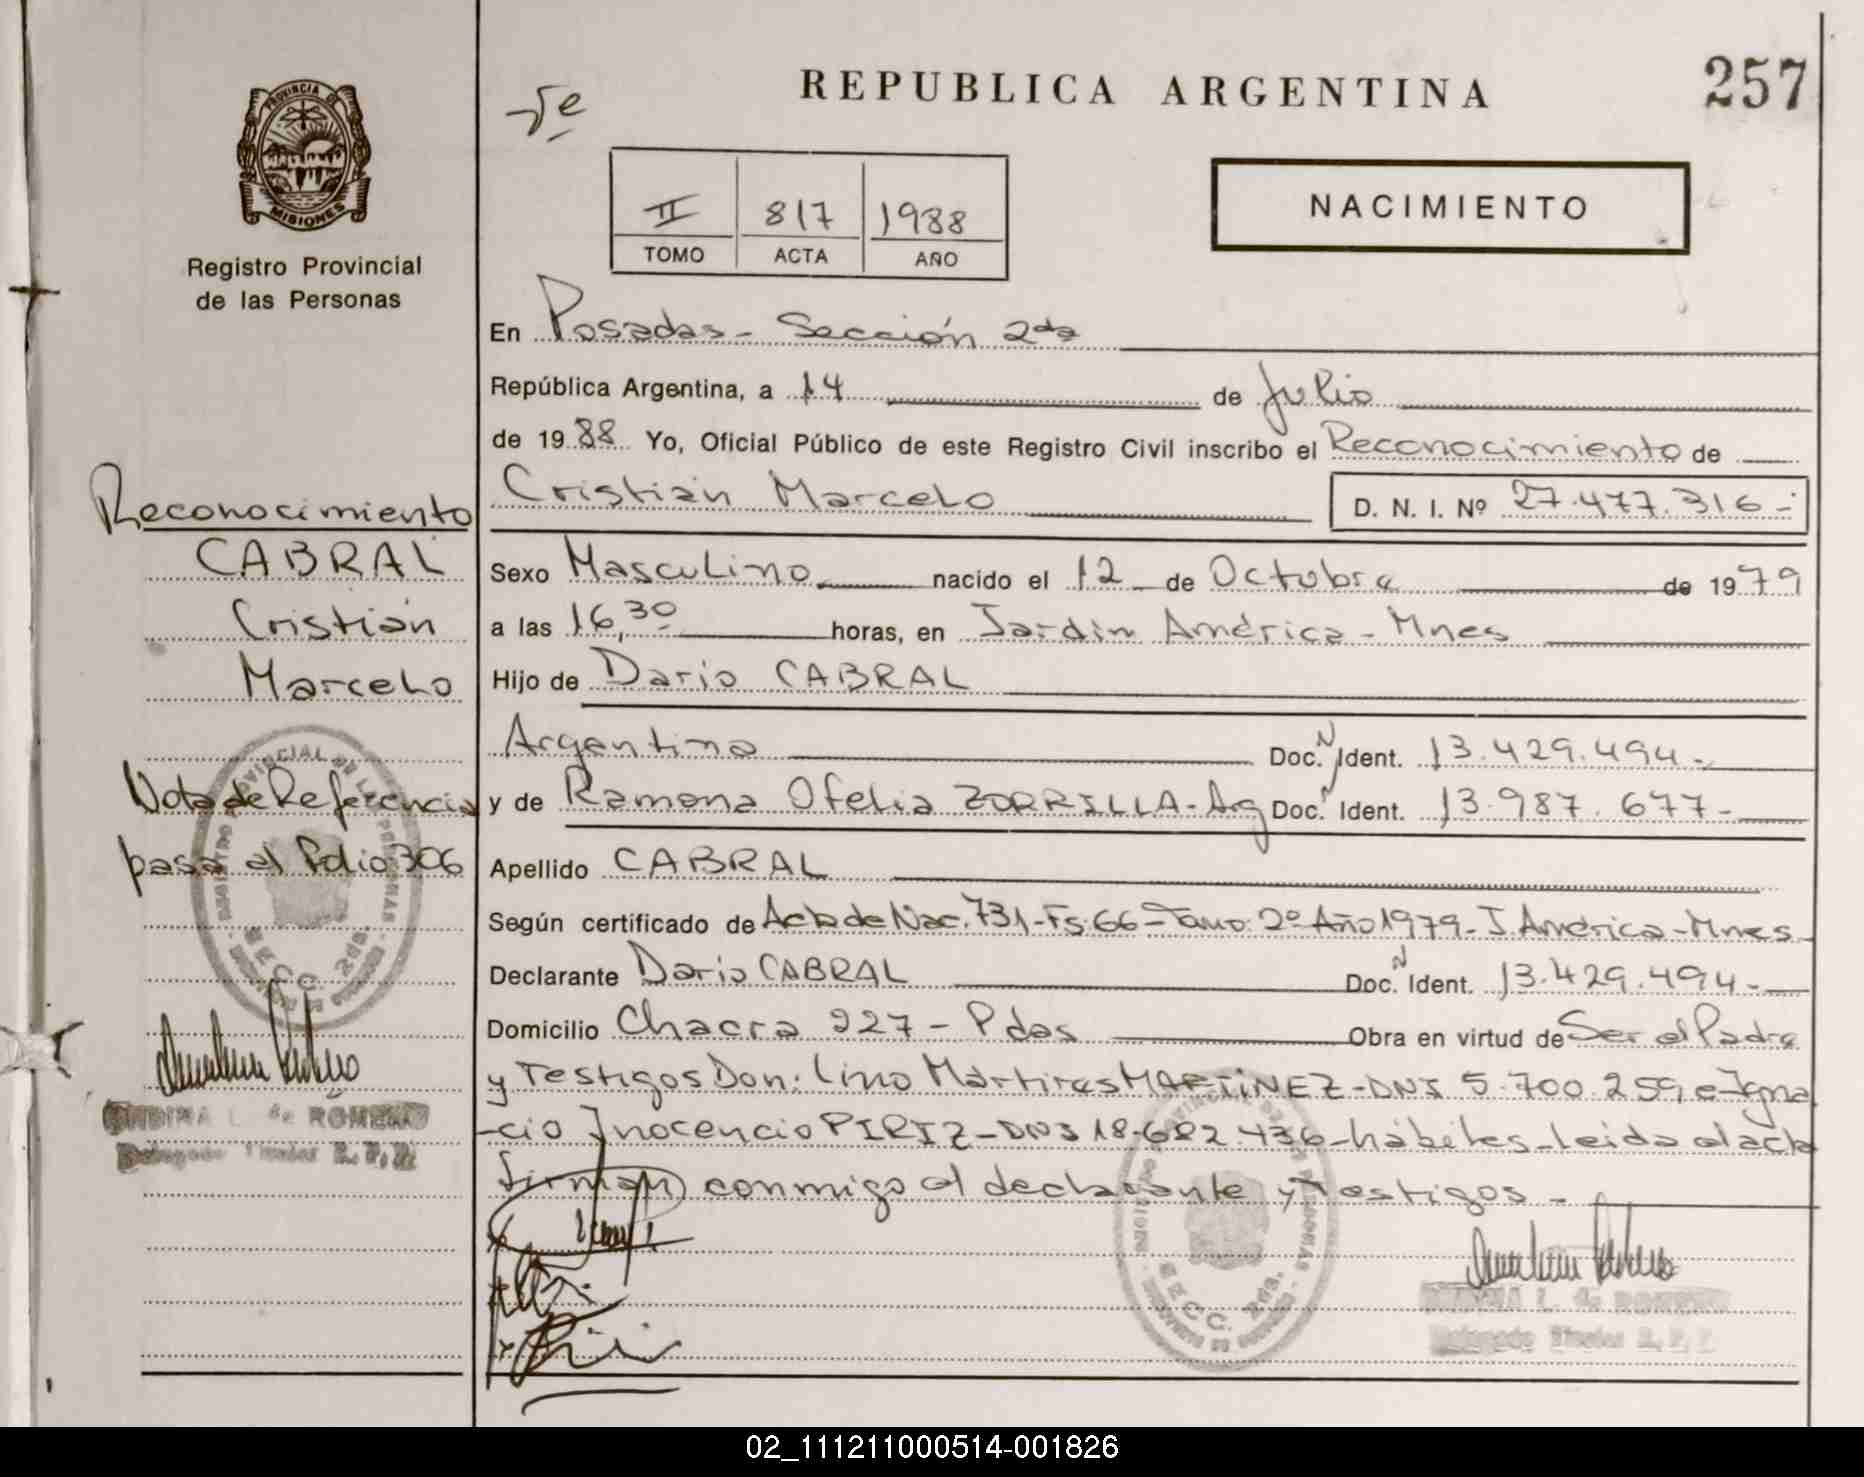 REPUBLICA ARGENTINA
257
PROVINCIA DE
MISIONES
Registro Provincial
de las Personas
II 817 1988
TOMO ACTA AÑO
NACIMIENTO
En Posadas - Sección 2da
República Argentina, a 14 de Julio
de 1988 Yo, Oficial Público de este Registro Civil inscribo el Reconocimiento de
Cristian Marcelo D. N. I. Nº 27.477.316-
Sexo Masculino nacido el 12 de Octubre de 1979
a las 16,30 horas, en Jardín América - Mnes
Hijo de Dario CABRAL
Argentino Doc. N Ident. 13.429.494-
y de Ramona Ofelia ZORRILLA - Arg Doc. N Ident. 13.987.677-
Apellido CABRAL
Según certificado de Acta de Nac. 731 - Fs. 66 - Tomo: 2º Año 1979 - J. América - Mnes
Declarante Dario CABRAL Doc. N Ident. 13.429.494-
Domicilio Chacra 227 - Pdas Obra en virtud de Ser el Padre
y Testigos Don: Lino Martires MARTINEZ - DNI 5.700.259, e Igna
-cio Inocencio PIRIZ - DNI 18.682.436 - hábiles - leida el acta
firman conmigo el declarante y testigos -
Reconocimiento
CABRAL
Cristián
Marcelo
Nota de Referencia
pasa al folio 306
L. de ROMERO
Delegado Titular R. P. P.
SECC. 2da.
L. de ROMERO
Delegado Titular R. P. P.
SECC. 2da.
02_111211000514-001826